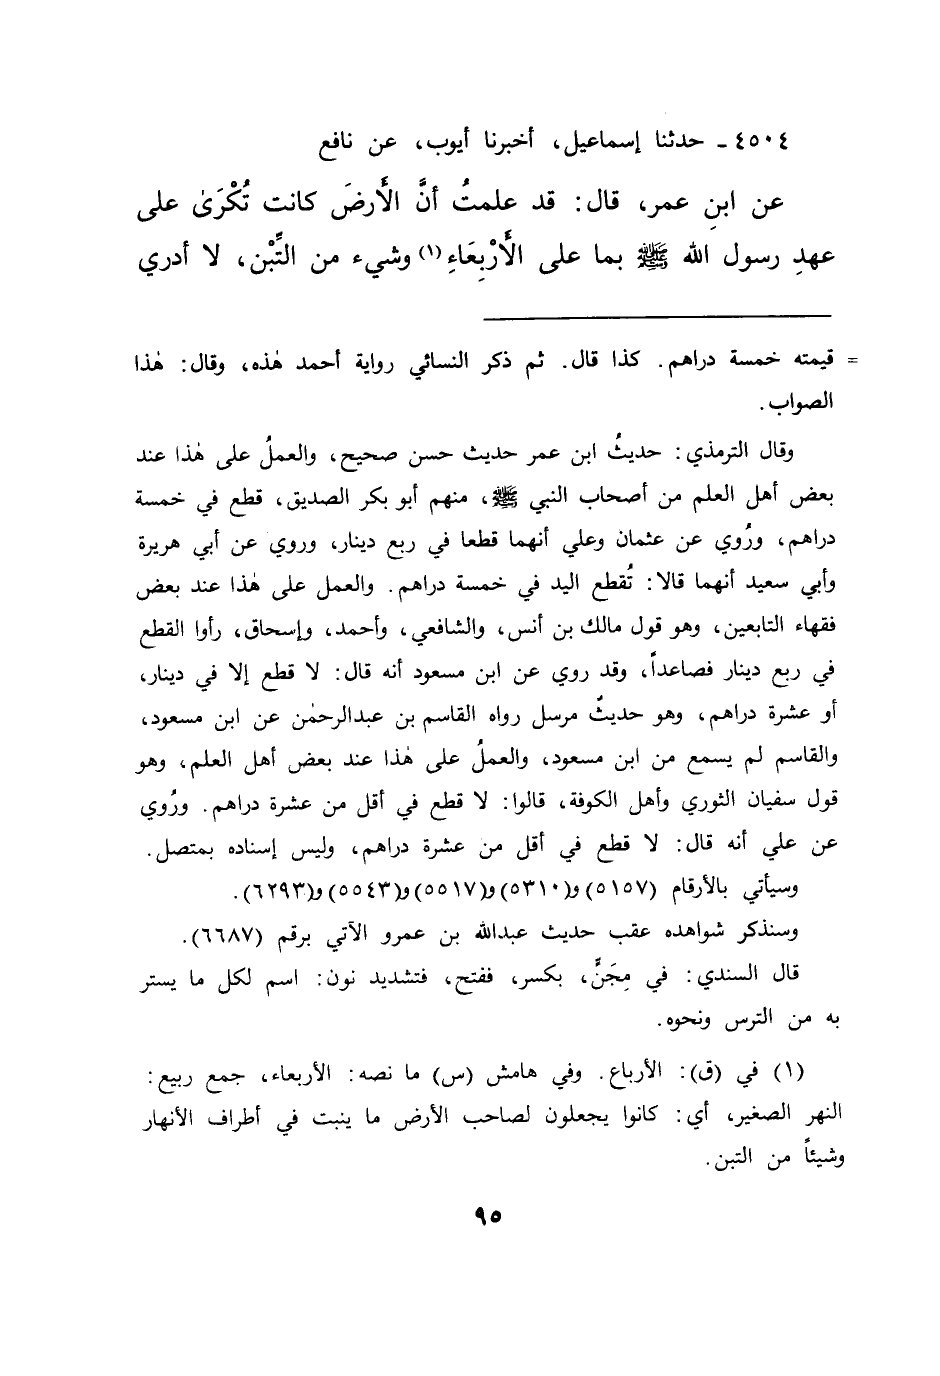 ٤٥٠٤ـ حدثنا إسماعيل، أخبرنا أيوب، عن نافع
عن ابنِ عمر، قال: قد علمتُ أنَّ الأَرضَ كانت تُكْرَىٰ على
عهدِ رسول الله ﷺ بما على الأَرْبِعَاءِ(١) وشيء من التِّبْن، لا أدري
= قيمته خمسة دراهم. كذا قال. ثم ذكر النسائي رواية أحمد هٰذه، وقال: هٰذا
الصواب.
وقال الترمذي: حديثُ ابن عمر حديث حسن صحيح، والعملُ على هٰذا عند
بعض أهل العلم من أصحاب النبي ﷺ، منهم أبو بكر الصديق، قطع في خمسة
دراهم، ورُوي عن عثمان وعلي أنهما قطعا في ربع دينار، وروي عن أبي هريرة
وأبي سعيد أنهما قالا: تُقطع اليد في خمسة دراهم. والعمل على هٰذا عند بعض
فقهاء التابعين، وهو قول مالك بن أنس، والشافعي، وأحمد، وإسحاق، رأوا القطع
في ربع دينار فصاعداً، وقد روي عن ابن مسعود أنه قال: لا قطع إلا في دينار،
أو عشرة دراهم، وهو حديثٌ مرسل رواه القاسم بن عبدالرحمٰن عن ابن مسعود،
والقاسم لم يسمع من ابن مسعود، والعملُ على هٰذا عند بعض أهل العلم، وهو
قول سفيان الثوري وأهل الكوفة، قالوا: لا قطع في أقل من عشرة دراهم. ورُوي
عن علي أنه قال: لا قطع في أقل من عشرة دراهم، وليس إسناده بمتصل.
وسيأتي بالأرقام (٥١٥٧) و(٥٣١٠) و(٥٥١٧) و(٥٥٤٣) و(٦٢٩٣).
وسنذكر شواهده عقب حديث عبدالله بن عمرو الآتي برقم (٦٦٨٧).
قال السندي: في مِجَنٍّ، بكسر، ففتح، فتشديد نون: اسم لكل ما يستر
به من الترس ونحوه.
(١) في (ق): الأرباع. وفي هامش (س) ما نصه: الأربعاء، جمع ربيع:
النهر الصغير، أي: كانوا يجعلون لصاحب الأرض ما ينبت في أطراف الأنهار
وشيئاً من التبن.
٩٥